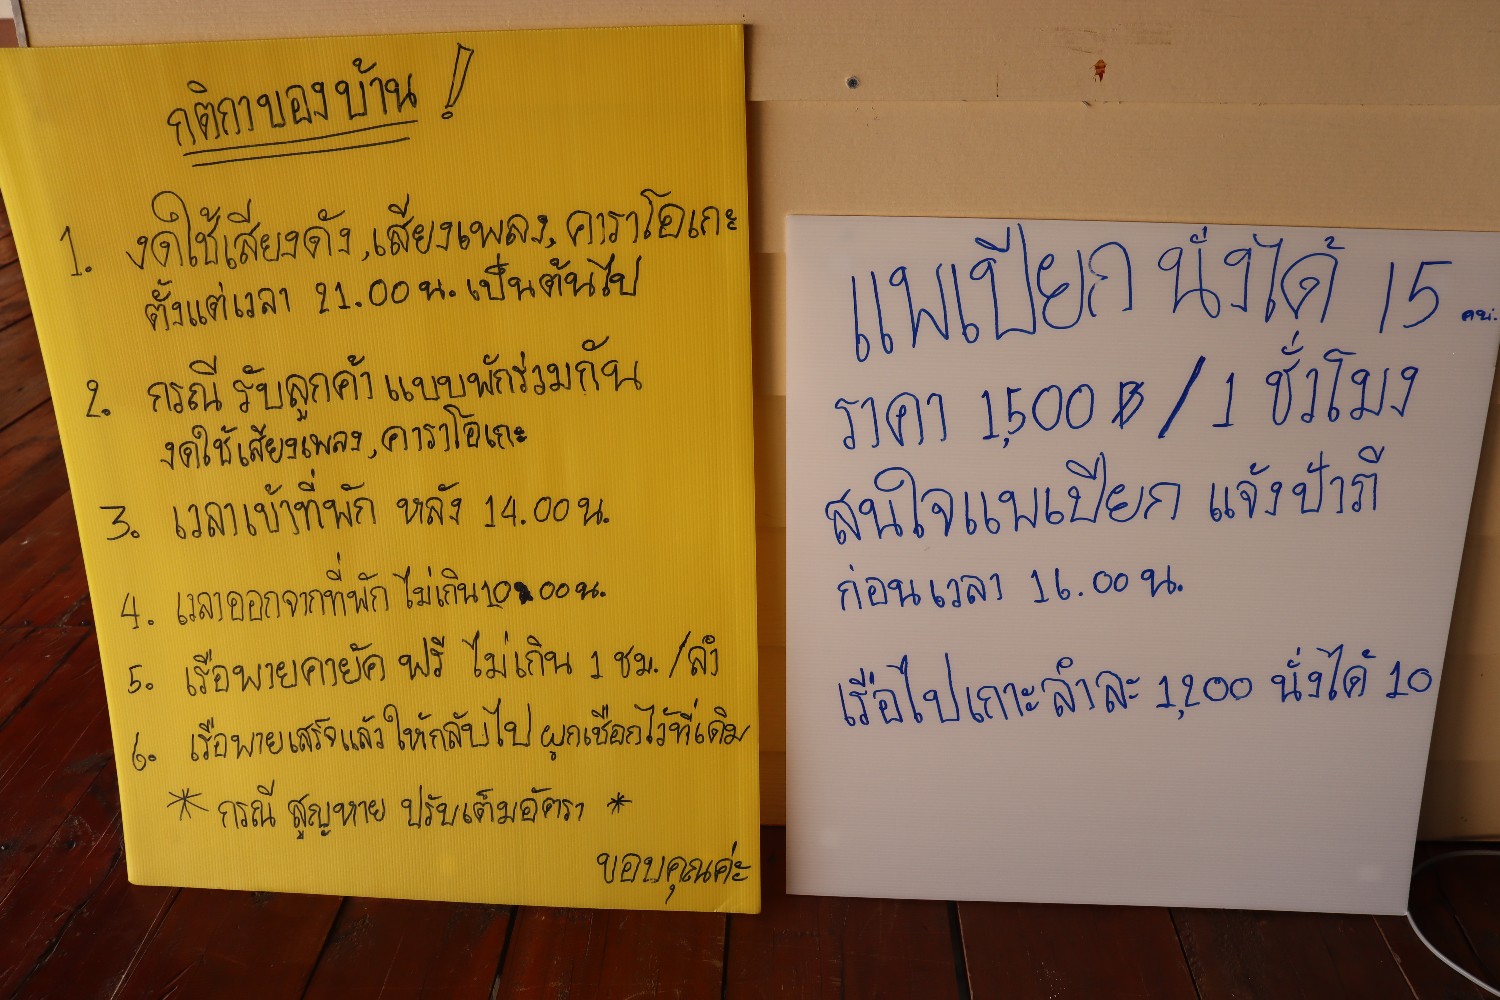 กติกาของบ้าน !
1. งดใช้เสียงดัง,เสียงเพลง,คาราโอเกะ
ตั้งแต่เวลา 21.00 น. เป็นต้นไป
2. กรณี รับลูกค้า แบบพักร่วมกัน
งดใช้เสียงเพลง,คาราโอเกะ
3. เวลาเข้าที่พัก หลัง 14.00 น.
4. เวลาออกจากที่พัก ไม่เกิน 10.00 น.
5. เรือพายคายัค ฟรี ไม่เกิน 1 ชม./ลำ
6. เรือพายเสร็จแล้ว ให้กลับไป ผูกเชือกไว้ที่เดิม
* กรณี สูญหาย ปรับเต็มอัตรา *
ขอบคุณค่ะ
แพเปียก นั่งได้ 15 คน.
ราคา 1,500 ฿ / 1 ชั่วโมง
สนใจแพเปียก แจ้งป้ารี
ก่อนเวลา 16.00 น.
เรือไปเกาะลำละ 1,200 นั่งได้ 10